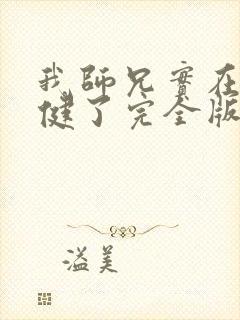 我師兄實在
健了完全版
溢美